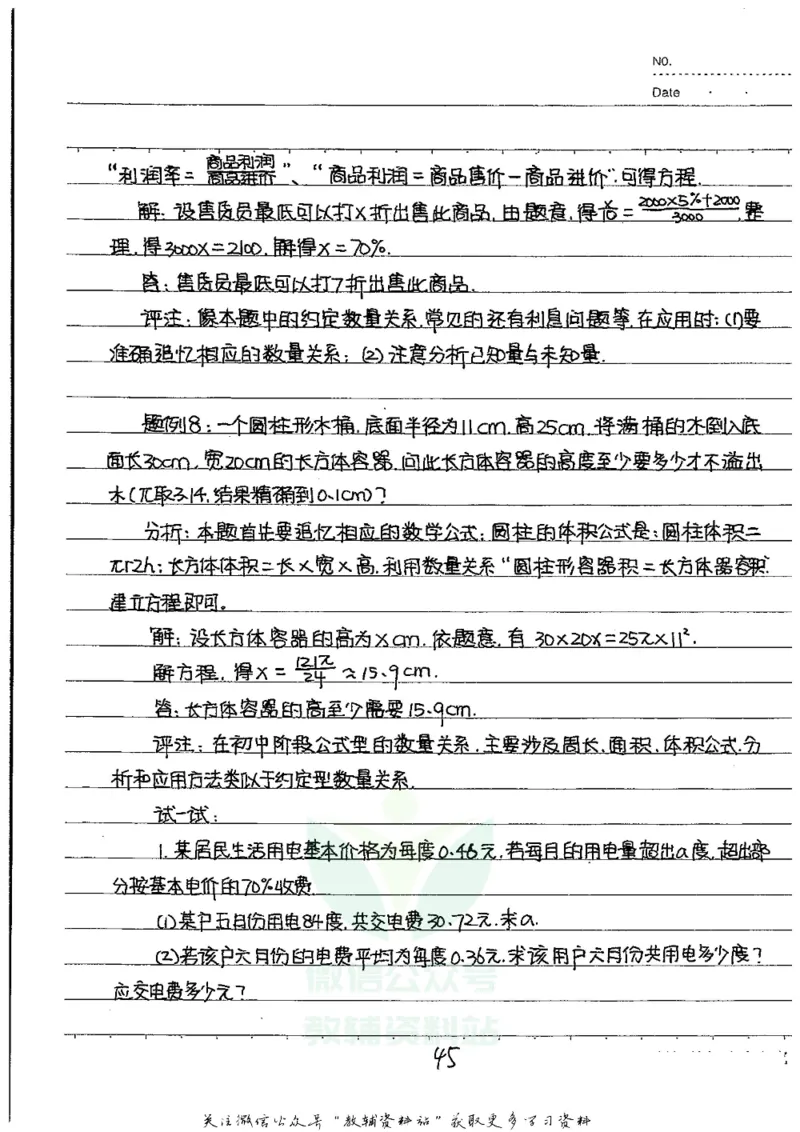 NO.
Date
“利润率=商品利润/商品进价”、“商品利润=商品售价-商品进价”.可得方程.
解:设售货员最低可以打x折出售此商品,由题意,得x/10=2000×5%+2000/3000,整
理,得3000x=2100,解得x=70%.
答:售货员最低可以打7折出售此商品.
评注:像本题中的约定数量关系,常见的还有利息问题等,在应用时:(1)要
准确追忆相应的数量关系;(2)注意分析已知量与未知量.
题例8:一个圆柱形木桶,底面半径为11cm,高25cm,将满桶的水倒入底
面长30cm,宽20cm的长方体容器,问此长方体容器的高度至少要多少才不溢出
水(π取3.14,结果精确到0.1cm)?
分析:本题首先要追忆相应的数学公式:圆柱的体积公式是:圆柱体积=
πr2h;长方体体积=长×宽×高,利用数量关系“圆柱形容器积=长方体器容积”
建立方程即可。
解:设长方体容器的高为xcm,依题意,有 30×20x=25π×11².
解方程,得x=121π/24≈15.9cm.
答:长方体容器的高至少需要15.9cm.
评注:在初中阶段公式型的数量关系,主要涉及周长、面积、体积公式.分
析和应用方法类似于约定型数量关系.
试一试:
1.某居民生活用电基本价格为每度0.46元,若每月的用电量超出a度,超出部
分按基本电价的70%收费.
(1)某户五月份用电84度,共交电费30.72元.求a.
(2)若该户六月份的电费平均为每度0.36元.求该用户六月份共用电多少度?
应交电费多少元?
微信公众号
教辅资料站
45
关注微信公众号“教辅资料站”获取更多学习资料